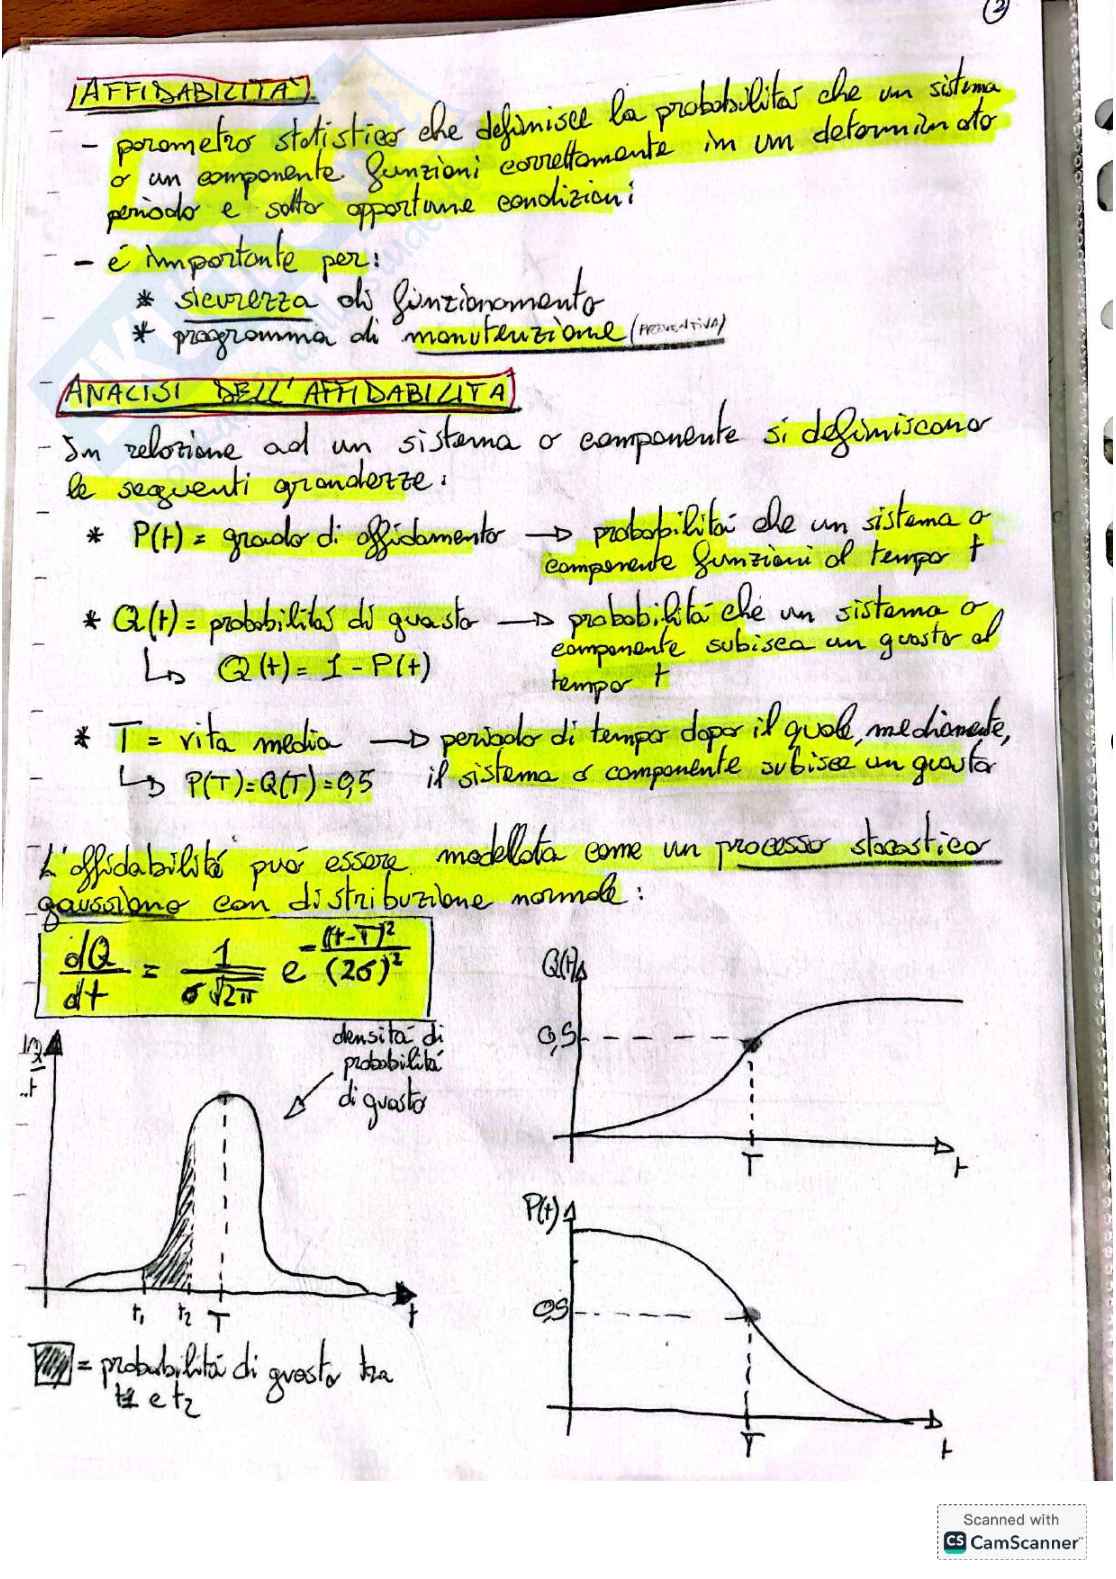 2
AFFIDABILITÀ
- parametro statistico che definisce la probabilità che un sistema
o un componente funzioni correttamente in un determinato
periodo e sotto opportune condizioni
- é importante per:
* sicurezza di funzionamento
* programma di manutenzione (PREVENTIVA)
ANALISI DELL'AFFIDABILITÀ
- In relazione ad un sistema o componente si definiscono
le seguenti grandezze:
* P(t) = grado di affidamento → probabilità che un sistema o
componente funzioni al tempo t
* Q(t) = probabilità di guasto → probabilità che un sistema o
componente subisca un guasto al
↳ Q(t) = 1 - P(t)
tempo t
* T = vita media → periodo di tempo dopo il quale, mediamente,
↳ P(T)=Q(T)=0,5 il sistema o componente subisce un guasto
L'affidabilità può essere modellata come un processo stocastico
gaussiano con distribuzione normale:
dQ/dt = 1/(σ√2π) e^-((t-T)²/(2σ)²)
densità di
probabilità
di guasto
t₁ t₂ T t
= probabilità di guasto tra
t1 e t2
Q(t)
0,5
T t
P(t)
0,5
T t
Scanned with
CS CamScanner